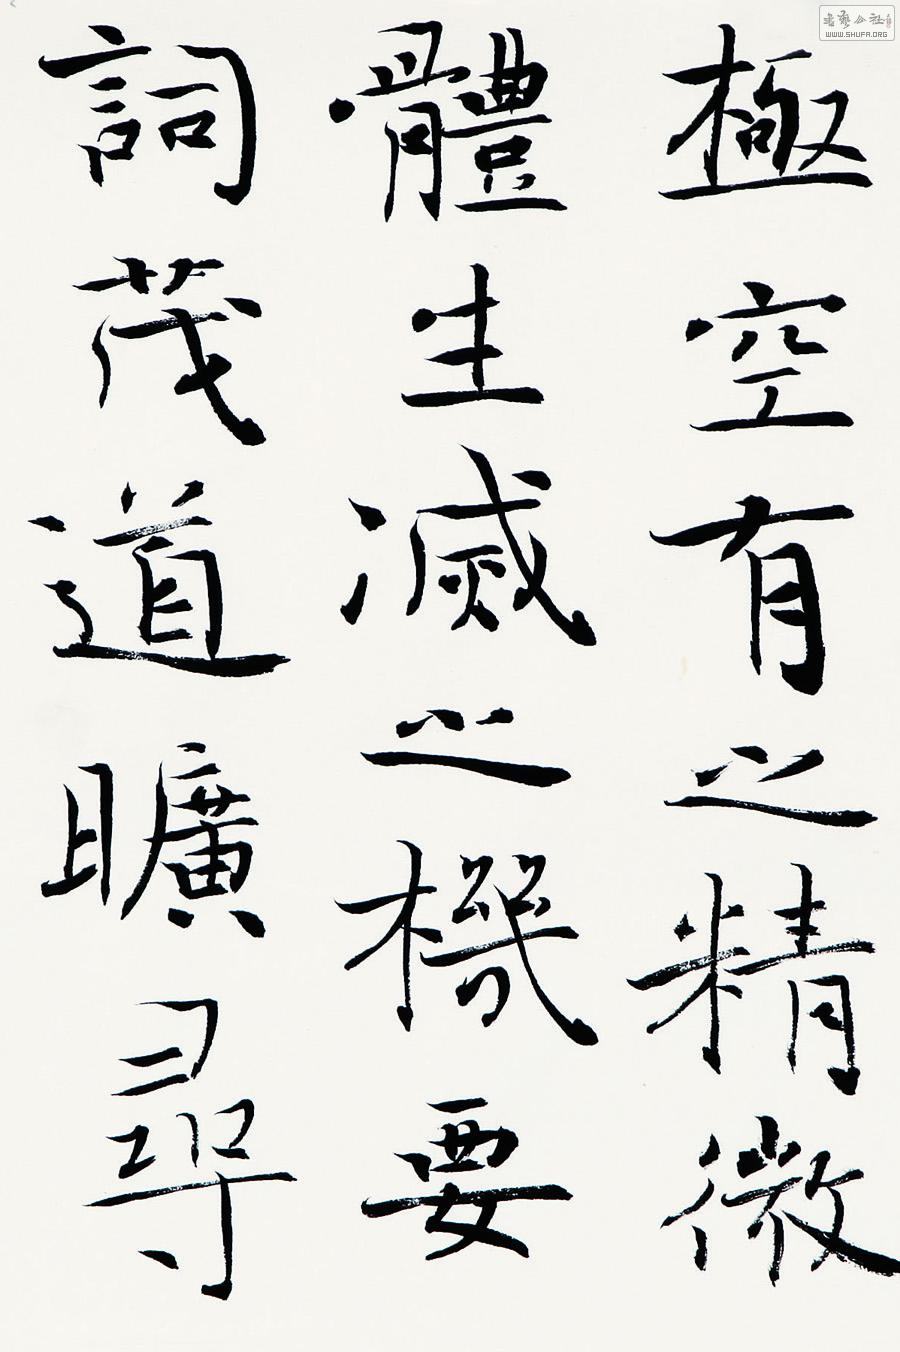 極空有之精微
體生滅之機要
詞茂道曠尋
書藝公社
WWW.SHUFA.ORG